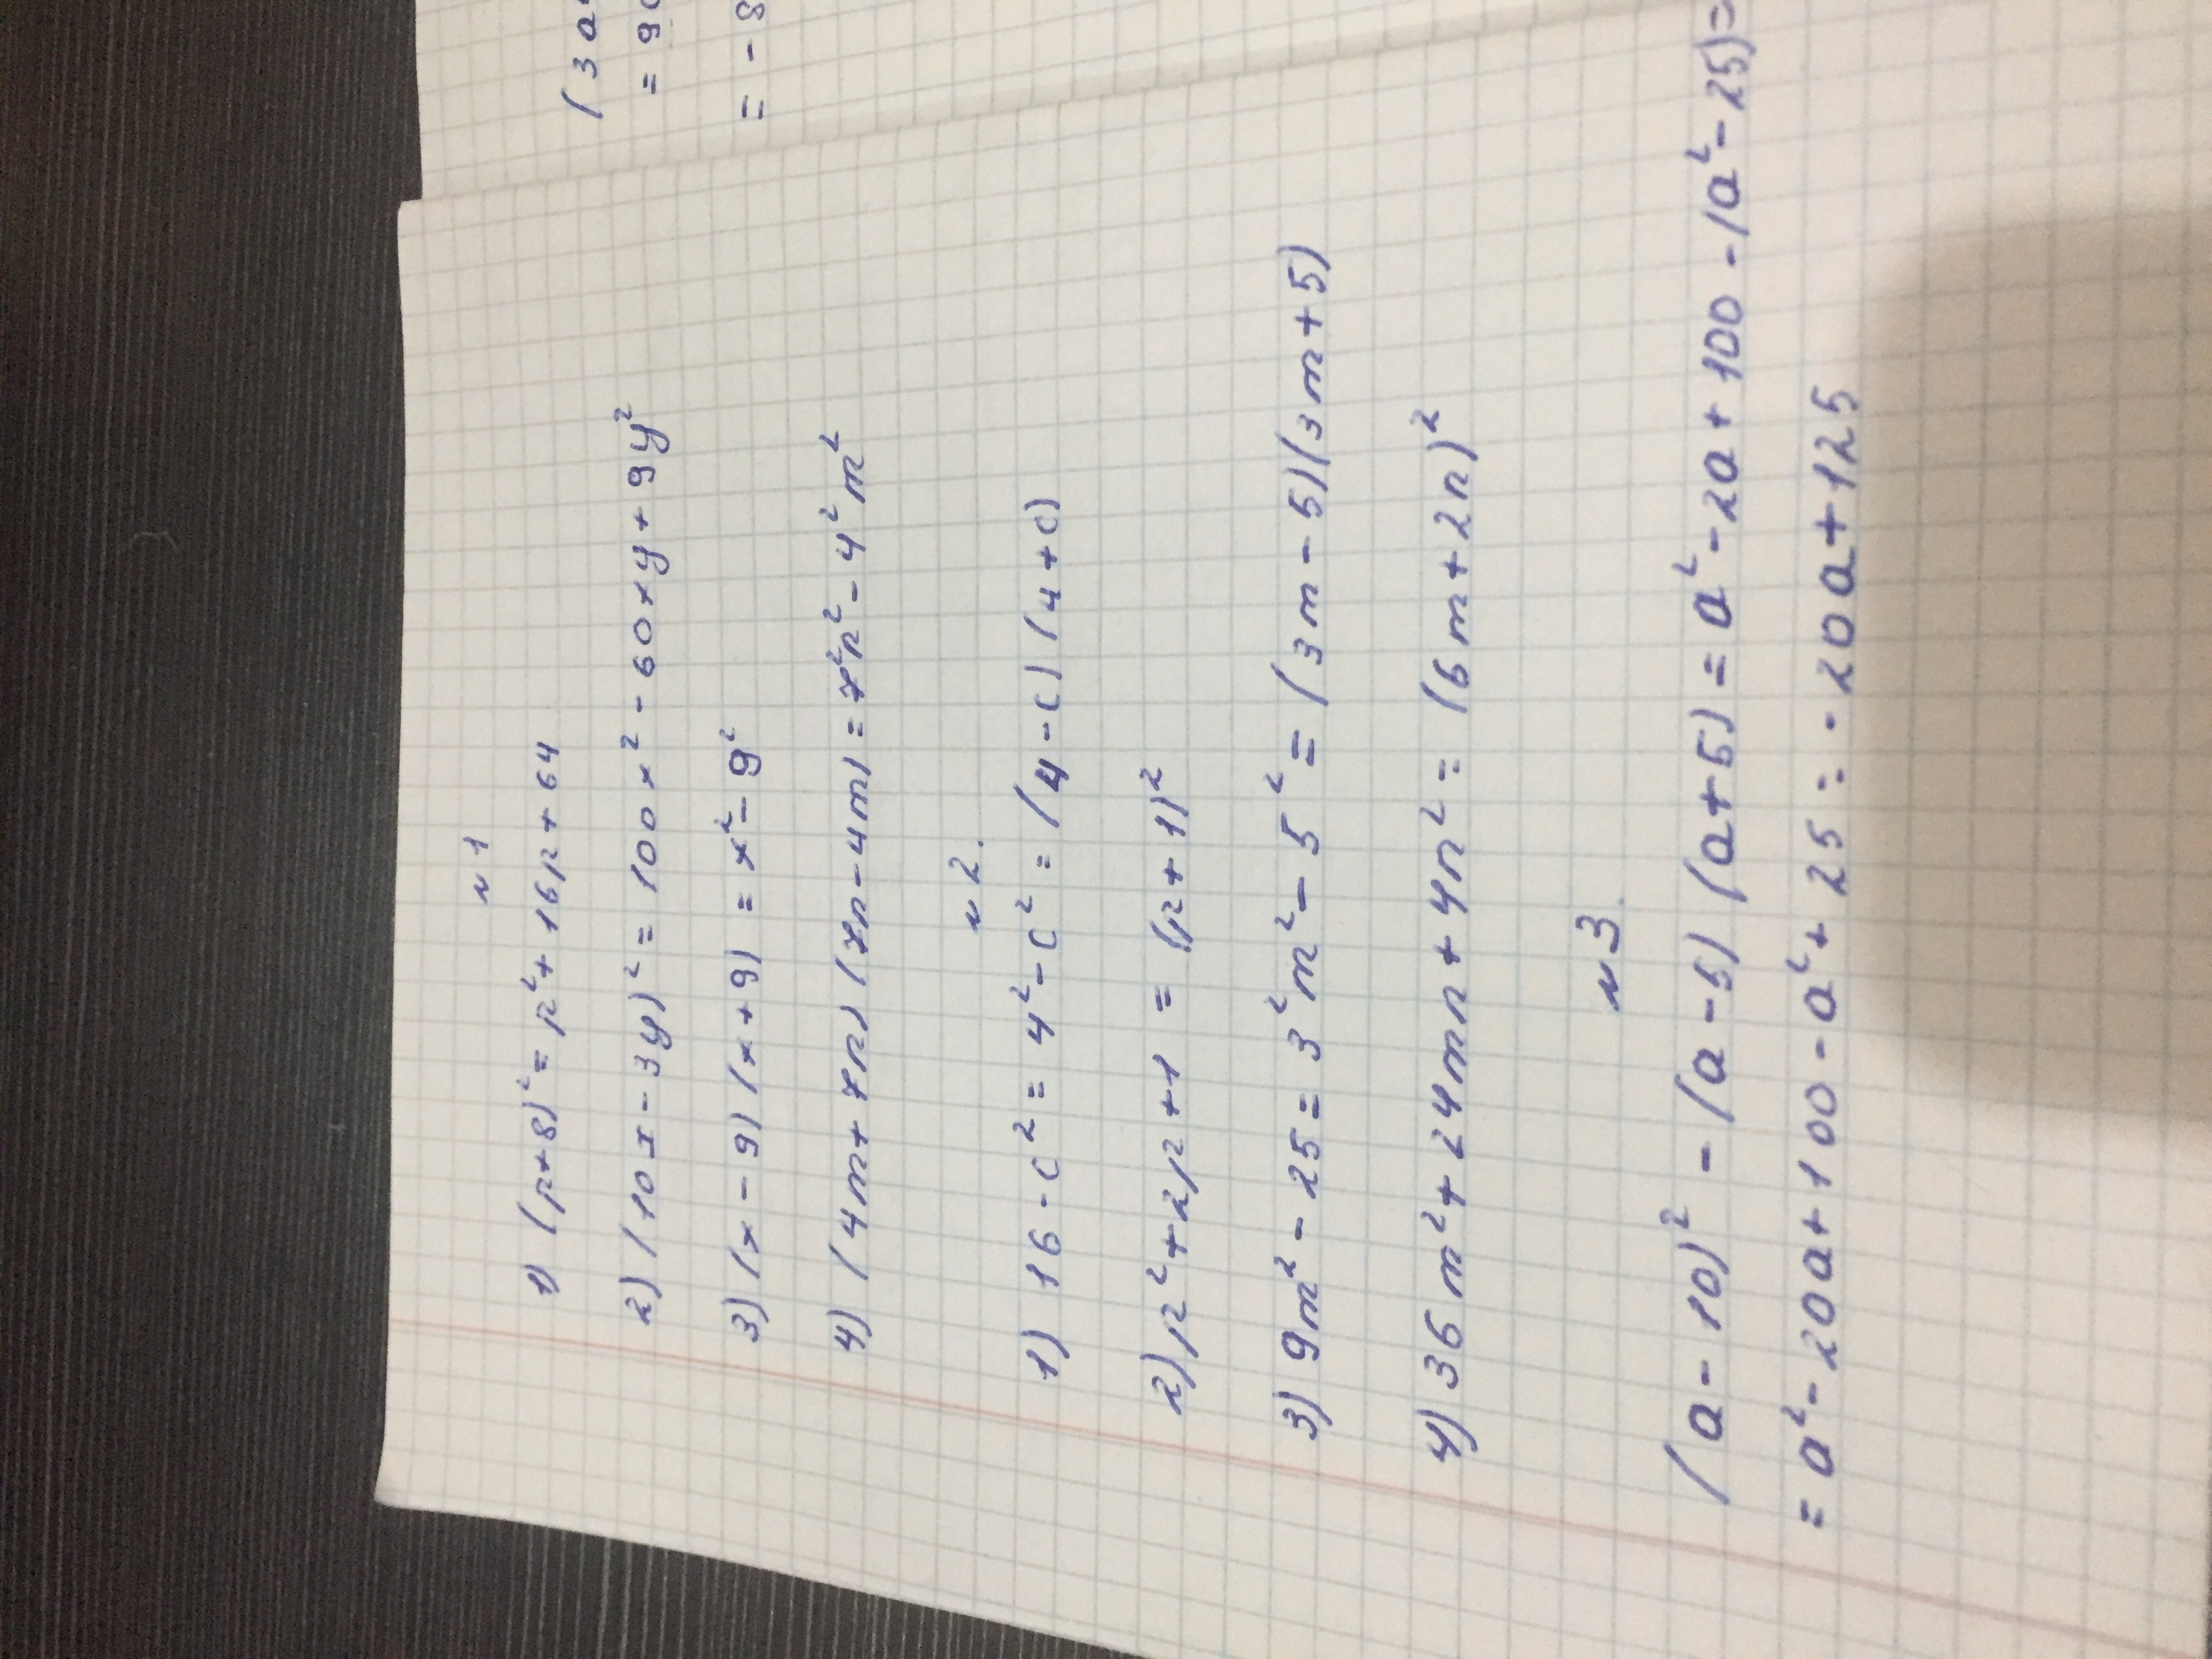 (3a
= 9
= - 8
№1
1) (p+8)² = p² + 16p + 64
2) (10x - 3y)² = 100x² - 60xy + 9y²
3) (x - 9) (x + 9) = x² - 9²
4) (4m + 7n) (7n - 4m) = 7²n² - 4²m²
№2.
1) 16 - c² = 4² - c² = (4 - c) (4 + c)
2) p² + 2p + 1 = (p + 1)²
3) 9m² - 25 = 3²m² - 5² = (3m - 5)(3m + 5)
4) 36m² + 24mn + 4n² = (6m + 2n)²
№3.
(a - 10)² - (a - 5) (a + 5) = a² - 20a + 100 - (a² - 25) =
= a² - 20a + 100 - a² + 25 = - 20a + 125